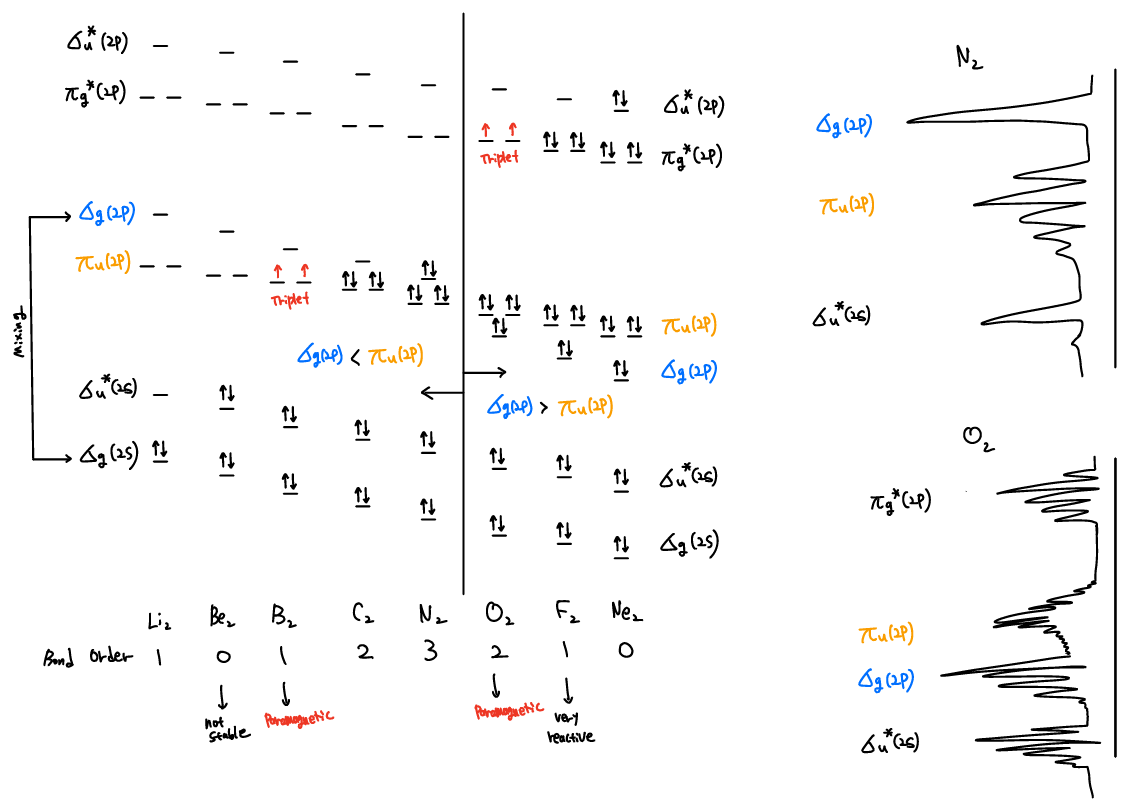 σu*(2p)
πg*(2p)
σg(2p)
πu(2p)
Mixing
σu*(2s)
σg(2s)
Triplet
σg(2p) < πu(2p)
Triplet
σu*(2p)
πg*(2p)
πu(2p)
σg(2p)
σg(2p) > πu(2p)
σu*(2s)
σg(2s)
Li2 Be2 B2 C2 N2 O2 F2 Ne2
Bond Order 1 0 1 2 3 2 1 0
not
stable
Paramagnetic
Paramagnetic
very
reactive
N2
σg(2p)
πu(2p)
σu*(2s)
O2
πg*(2p)
πu(2p)
σg(2p)
σu*(2s)